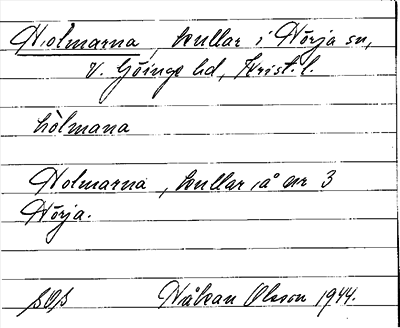 Holmarna, kullar i Nörja sn,
V. Göinge hd, Krist. l.
hòlmana
Holmarna, kullar å nr 3
Nörja.
SOS Håkan Olsson 1944.